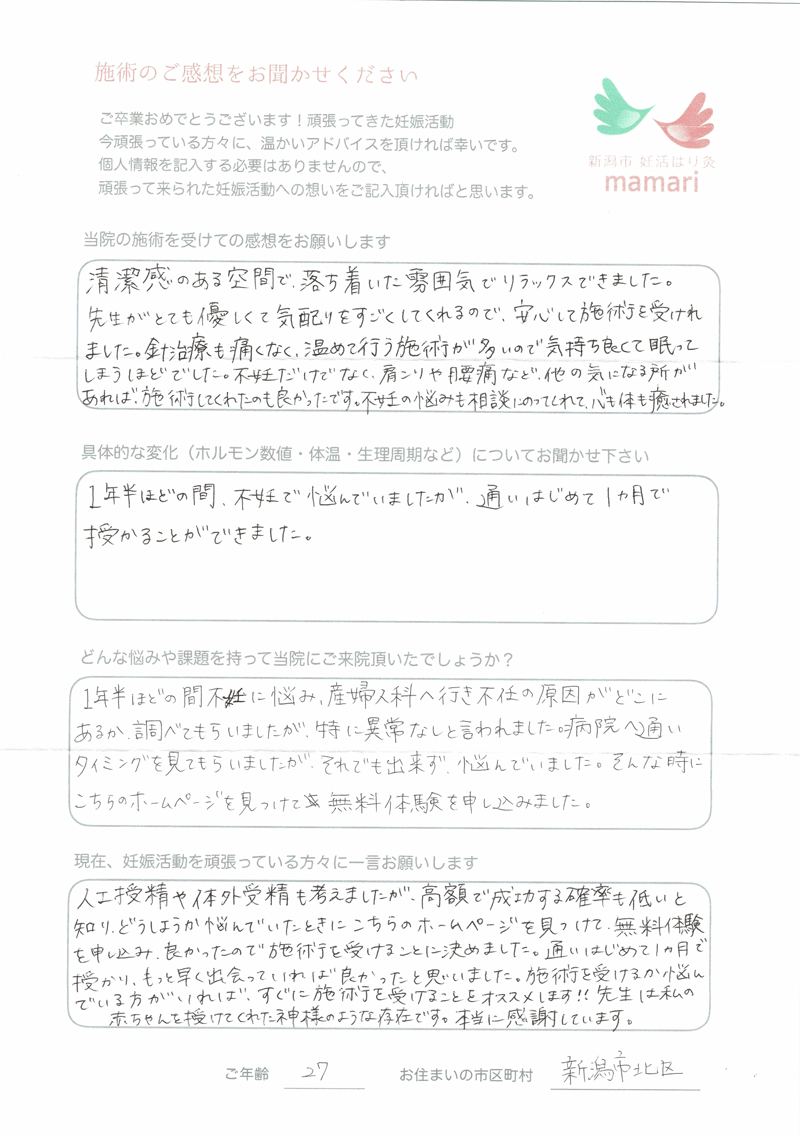 施術のご感想をお聞かせください
ご卒業おめでとうございます！頑張ってきた妊娠活動
今頑張っている方々に、温かいアドバイスを頂ければ幸いです。
個人情報を記入する必要はありませんので、
頑張って来られた妊娠活動への想いをご記入頂ければと思います。
新潟市 妊活はり灸
mamari
当院の施術を受けての感想をお願いします
清潔感のある空間で、落ち着いた雰囲気でリラックスできました。
先生がとても優しくて気配りをすごくしてくれるので、安心して施術を受けれ
ました。針治療も痛くなく、温めて行う施術が多いので気持ち良くて眠って
しまうほどでした。不妊だけでなく、肩こりや腰痛など、他の気になる所が
あれば、施術してくれたのも良かったです。不妊の悩みも相談にのってくれて、心も体も癒されました。
具体的な変化（ホルモン数値・体温・生理周期など）についてお聞かせ下さい
1年半ほどの間、不妊で悩んでいましたが、通いはじめて1ヵ月で
授かることができました。
どんな悩みや課題を持って当院にご来院頂いたでしょうか？
1年半ほどの間不妊に悩み、産婦人科へ行き不任の原因がどこに
あるか、調べてもらいましたが、特に異常なしと言われました。病院へ通い
タイミングを見てもらいましたが、それでも出来ず、悩んでいました。そんな時に
こちらのホームページを見つけて 無料体験を申し込みました。
現在、妊娠活動を頑張っている方々に一言お願いします
人工授精や体外受精も考えましたが、高額で成功する確率も低いと
知り、どうしようか悩んでいたときにこちらのホームページを見つけて、無料体験
を申し込み、良かったので施術を受けることに決めました。通いはじめて1ヵ月で
授かり、もっと早く出会っていれば良かったと思いました。施術を受けるか悩ん
でいる方がいれば、すぐに施術を受けることをオススメします!! 先生は私の
赤ちゃんを授けてくれた神様のような存在です。本当に感謝しています。
ご年齢 27 お住まいの市区町村 新潟市北区